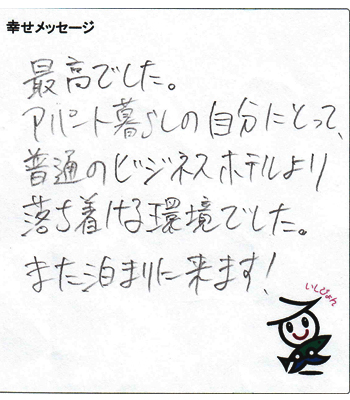 幸せメッセージ
最高でした。
アパート暮らしの自分にとって、
普通のビジネスホテルより
落ち着ける環境でした。
また泊まりに来ます!
いしぴょん